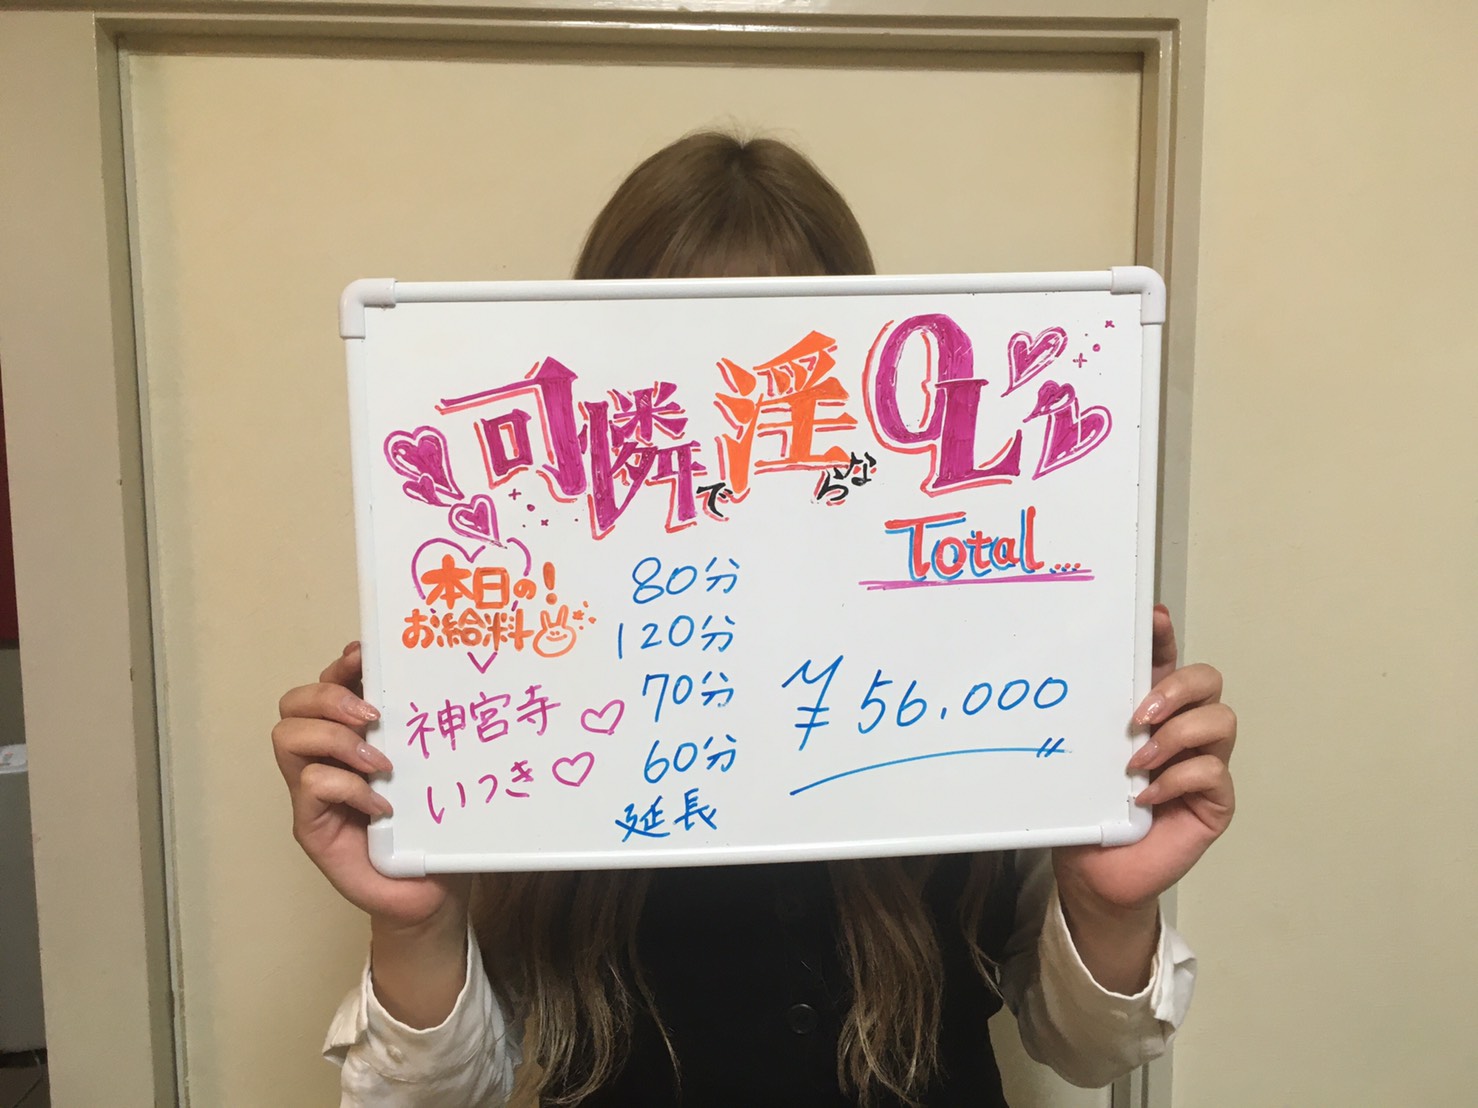 可憐で淫らなOL
Total...
本日の!
お給料
神宮寺♡
いつき♡
80分
120分
70分
60分
延長
¥56.000